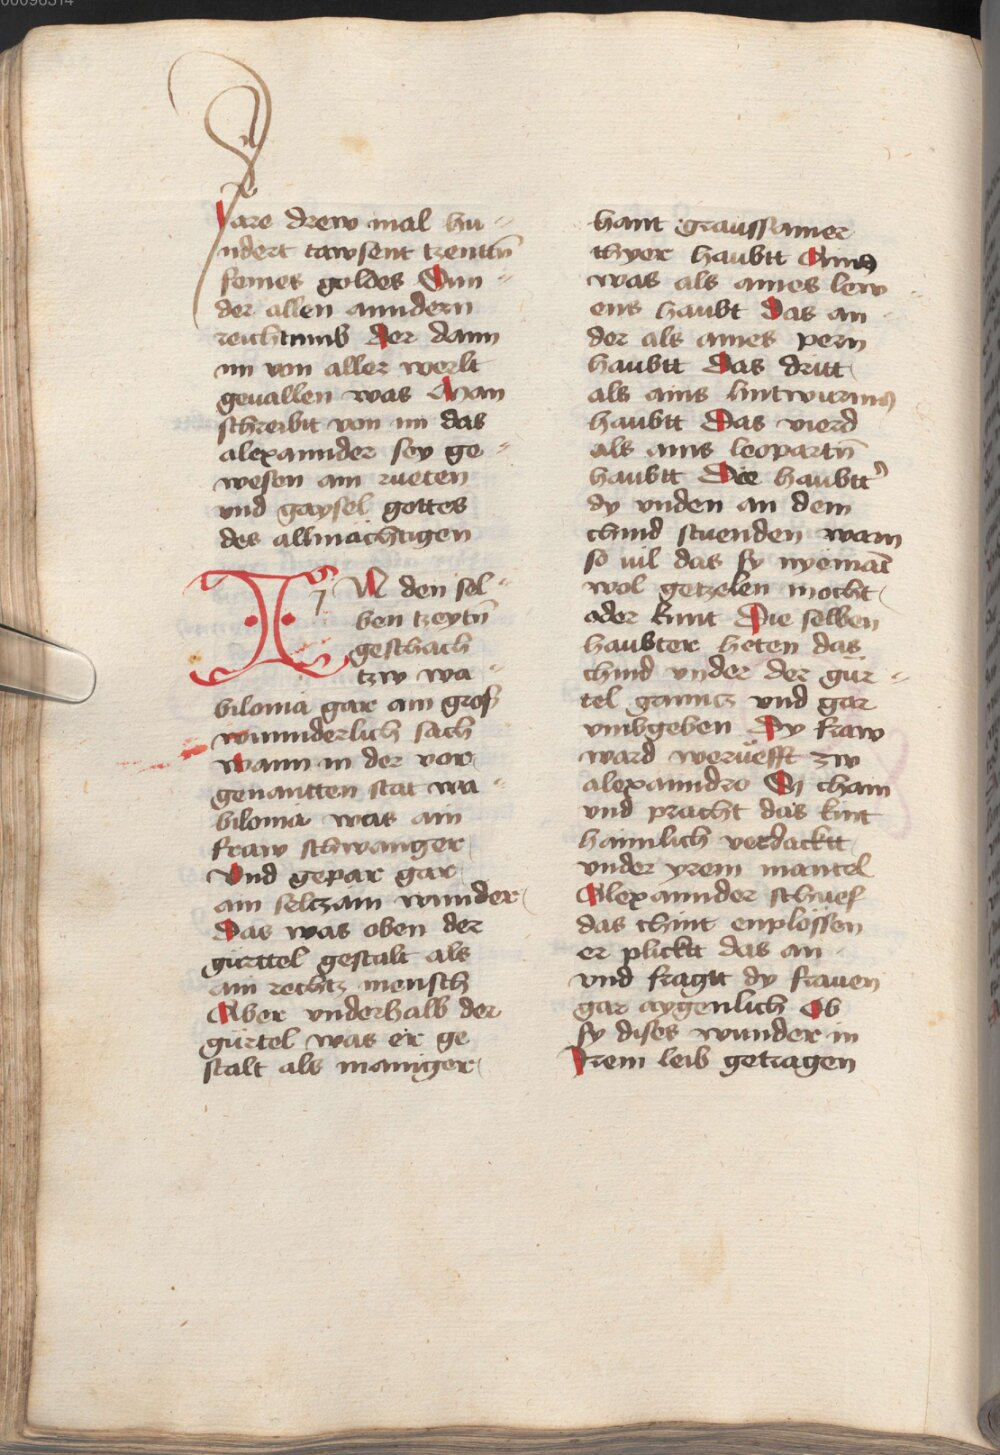 00096514
Jare drew mal hu-
ndert tawsent tzenttñ
feines goldes Wnn-
der allen anndern
reichtumb Der dann
im von aller werlt
geuallen was Man
schreibt von im das
alexannder sey ge-
wesen ain rueten
vnd gaysel gottes
des allmachtigen
IN den sel-
ben tzeytñ
geschach
tzw wa-
bilonia gar ain groß
wunnderlich sach
wann in der vor
genantten stat wa-
bilonia was ain
fraw schwanger
Vnd gepar gar
ain seltzam wunder
Das was oben der
gürttel gestalt als
ain rechtz mensch
Aber vnderhalb der
gürtel was er ge
stalt als maniger
hant graussamer
thyer haubtt Ains
was als aines lew
ens haubt Das an-
der als aines pern
haubtt Das dritt
als ains lintwurms
haubtt Das vierd
als ains leopartñ
haubtt Die haubtt
dy vnden an dem
chind stuenden warn
so vil das sy nyemāt
wol getzelen mocht
oder kunt Die selben
haubter heten das
chind vnder der gür-
tel gannz vnd gar
vmbgeben Dy fraw
ward werüefft zw
alexanndro Sy cham
vnd pracht das kint
haimlich verdacktt
vnder yrem mantel
Alexannder schuef
das chint enplössen
er plicktt das an
vnd fragtt dy frauen
gar aygenlich Ob
sy dises wunder in
Irem leib getragen